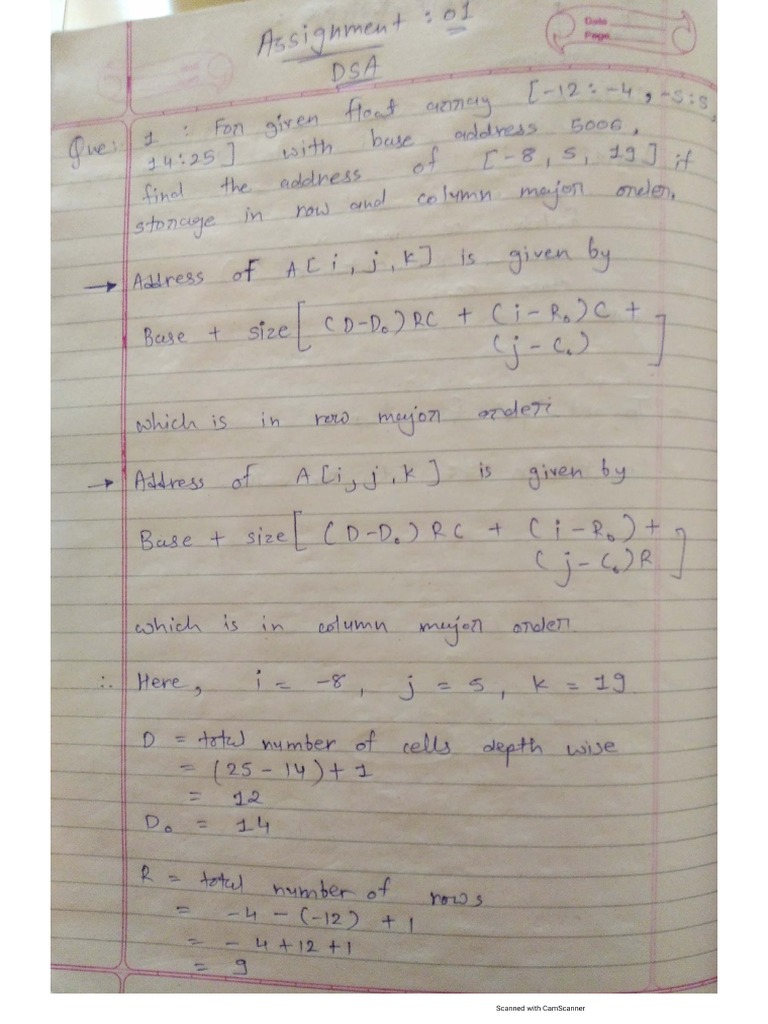 Assignment : 01
DSA
Date
Page
Ques: 1 : For given float array [-12:-4, -5:5,
14:25] with base address 5006,
find the address of [-8, 5, 19] if
storage in row and column major order.
→ Address of A[i, j, k] is given by
Base + size[ (D-D₀)RC + (i-R₀)C +
(j-C₀) ]
which is in row major order:
→ Address of A[i, j, k] is given by
Base + size[ (D-D₀)RC + (i-R₀) +
(j-C₀)R ]
which is in column major order.
∴ Here, i = -8, j = 5, k = 19
D = total number of cells depth wise
= (25-14)+1
= 12
D₀ = 14
R = total number of rows
= -4-(-12) + 1
= -4+12+1
= 9
Scanned with CamScanner